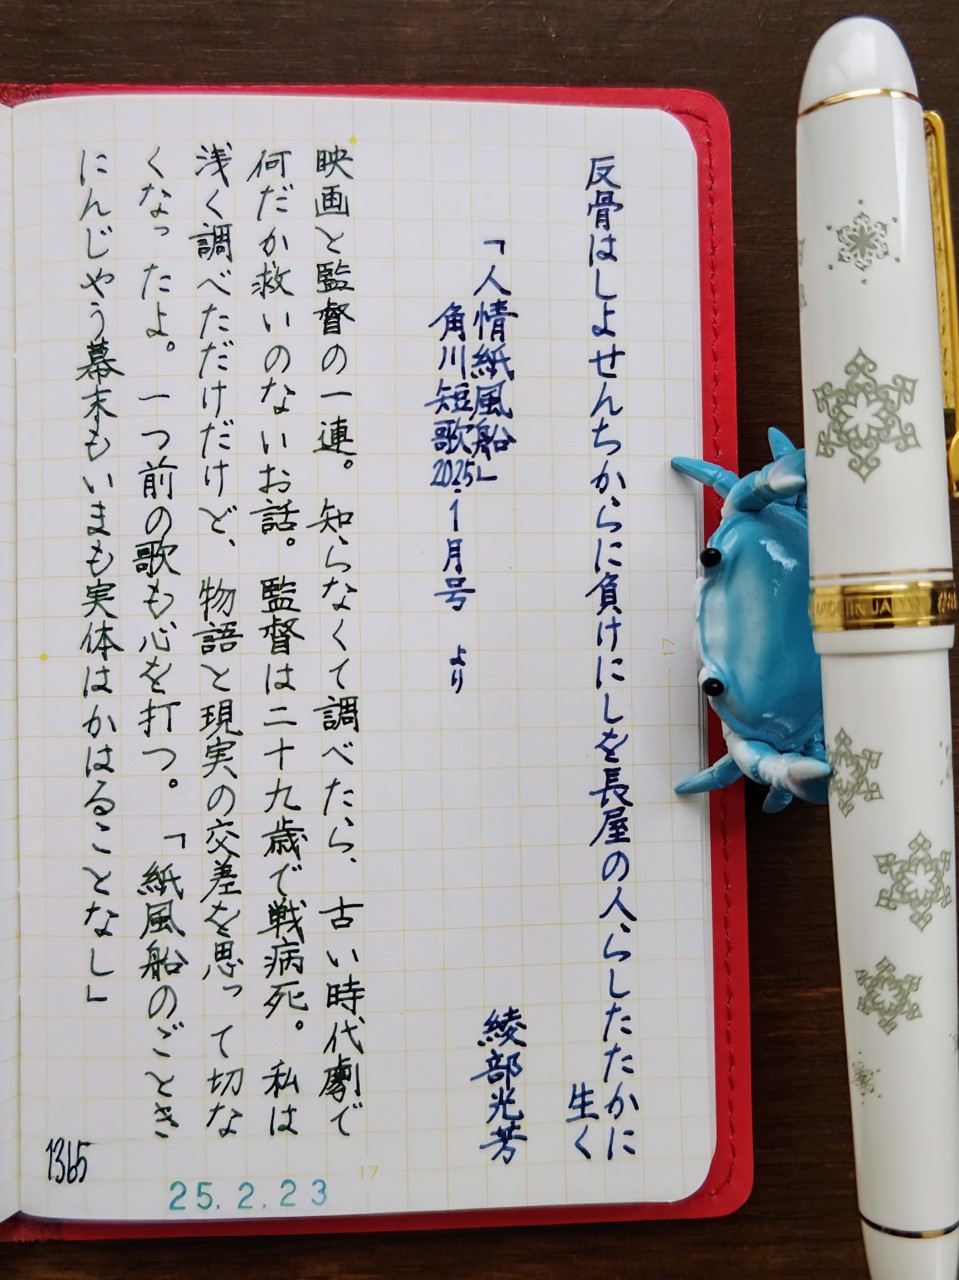 反骨はしよせんちからに負けにしを長屋の人らしたたかに
生く
綾部光芳
「人情紙風船」
角川短歌2025.1月号 より
映画と監督の一連。知らなくて調べたら、古い時代劇で
何だか救いのないお話。監督は二十九歳で戦病死。私は
浅く調べただけだけど、物語と現実の交差を思って切な
くなったよ。一つ前の歌も心を打つ。「紙風船のごとき
にんじやう幕末もいまも実体はかはることなし」
1365
25.2.23
17
17
MADE IN JAPAN